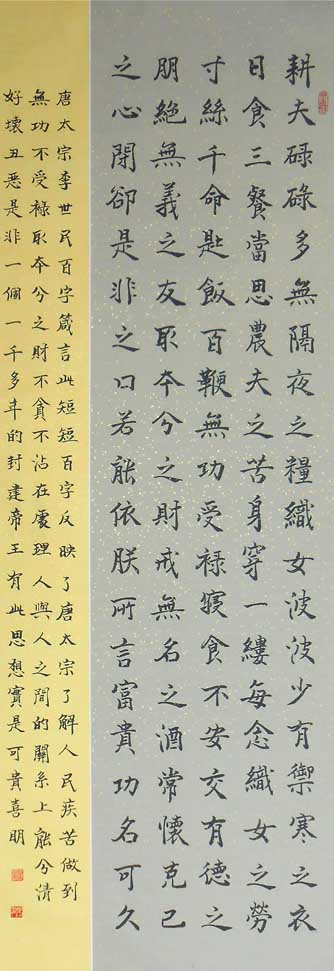 耕夫碌碌多無隔夜之糧織女波波少有禦寒之衣
日食三餐當思農夫之苦身穿一縷每念織女之勞
寸絲千命匙飯百鞭無功受祿寢食不安交有德之
朋絕無義之友取本分之財戒無名之酒常懷克己
之心閉卻是非之口若能依朕所言富貴功名可久
唐太宗李世民百字箴言此短短百字反映了唐太宗了解人民疾苦做到
無功不受祿取本分之財不貪不沾在處理人與人之間的關系上能分清
好壞丑惡是非一個一千多年的封建帝王有此思想實是可貴喜明